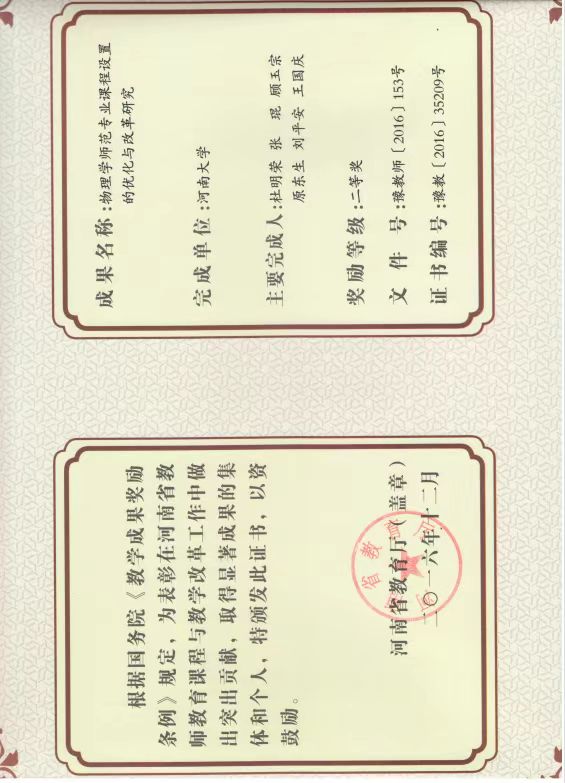 根据国务院《教学成果奖励
条例》规定，为表彰在河南省教
师教育课程与教学改革工作中做
出突出贡献，取得显著成果的集
体和个人，特颁发此证书，以资
鼓励。
河南省教育厅（盖章）
二〇一六年十二月
成果名称:物理学师范专业课程设置
的优化与改革研究
完成单位:河南大学
主要完成人:杜明荣 张 琨 顾玉宗
原东生 刘平安 王国庆
奖励等级:二等奖
文件号:豫教师〔2016〕153号
证书编号:豫教〔2016〕35209号